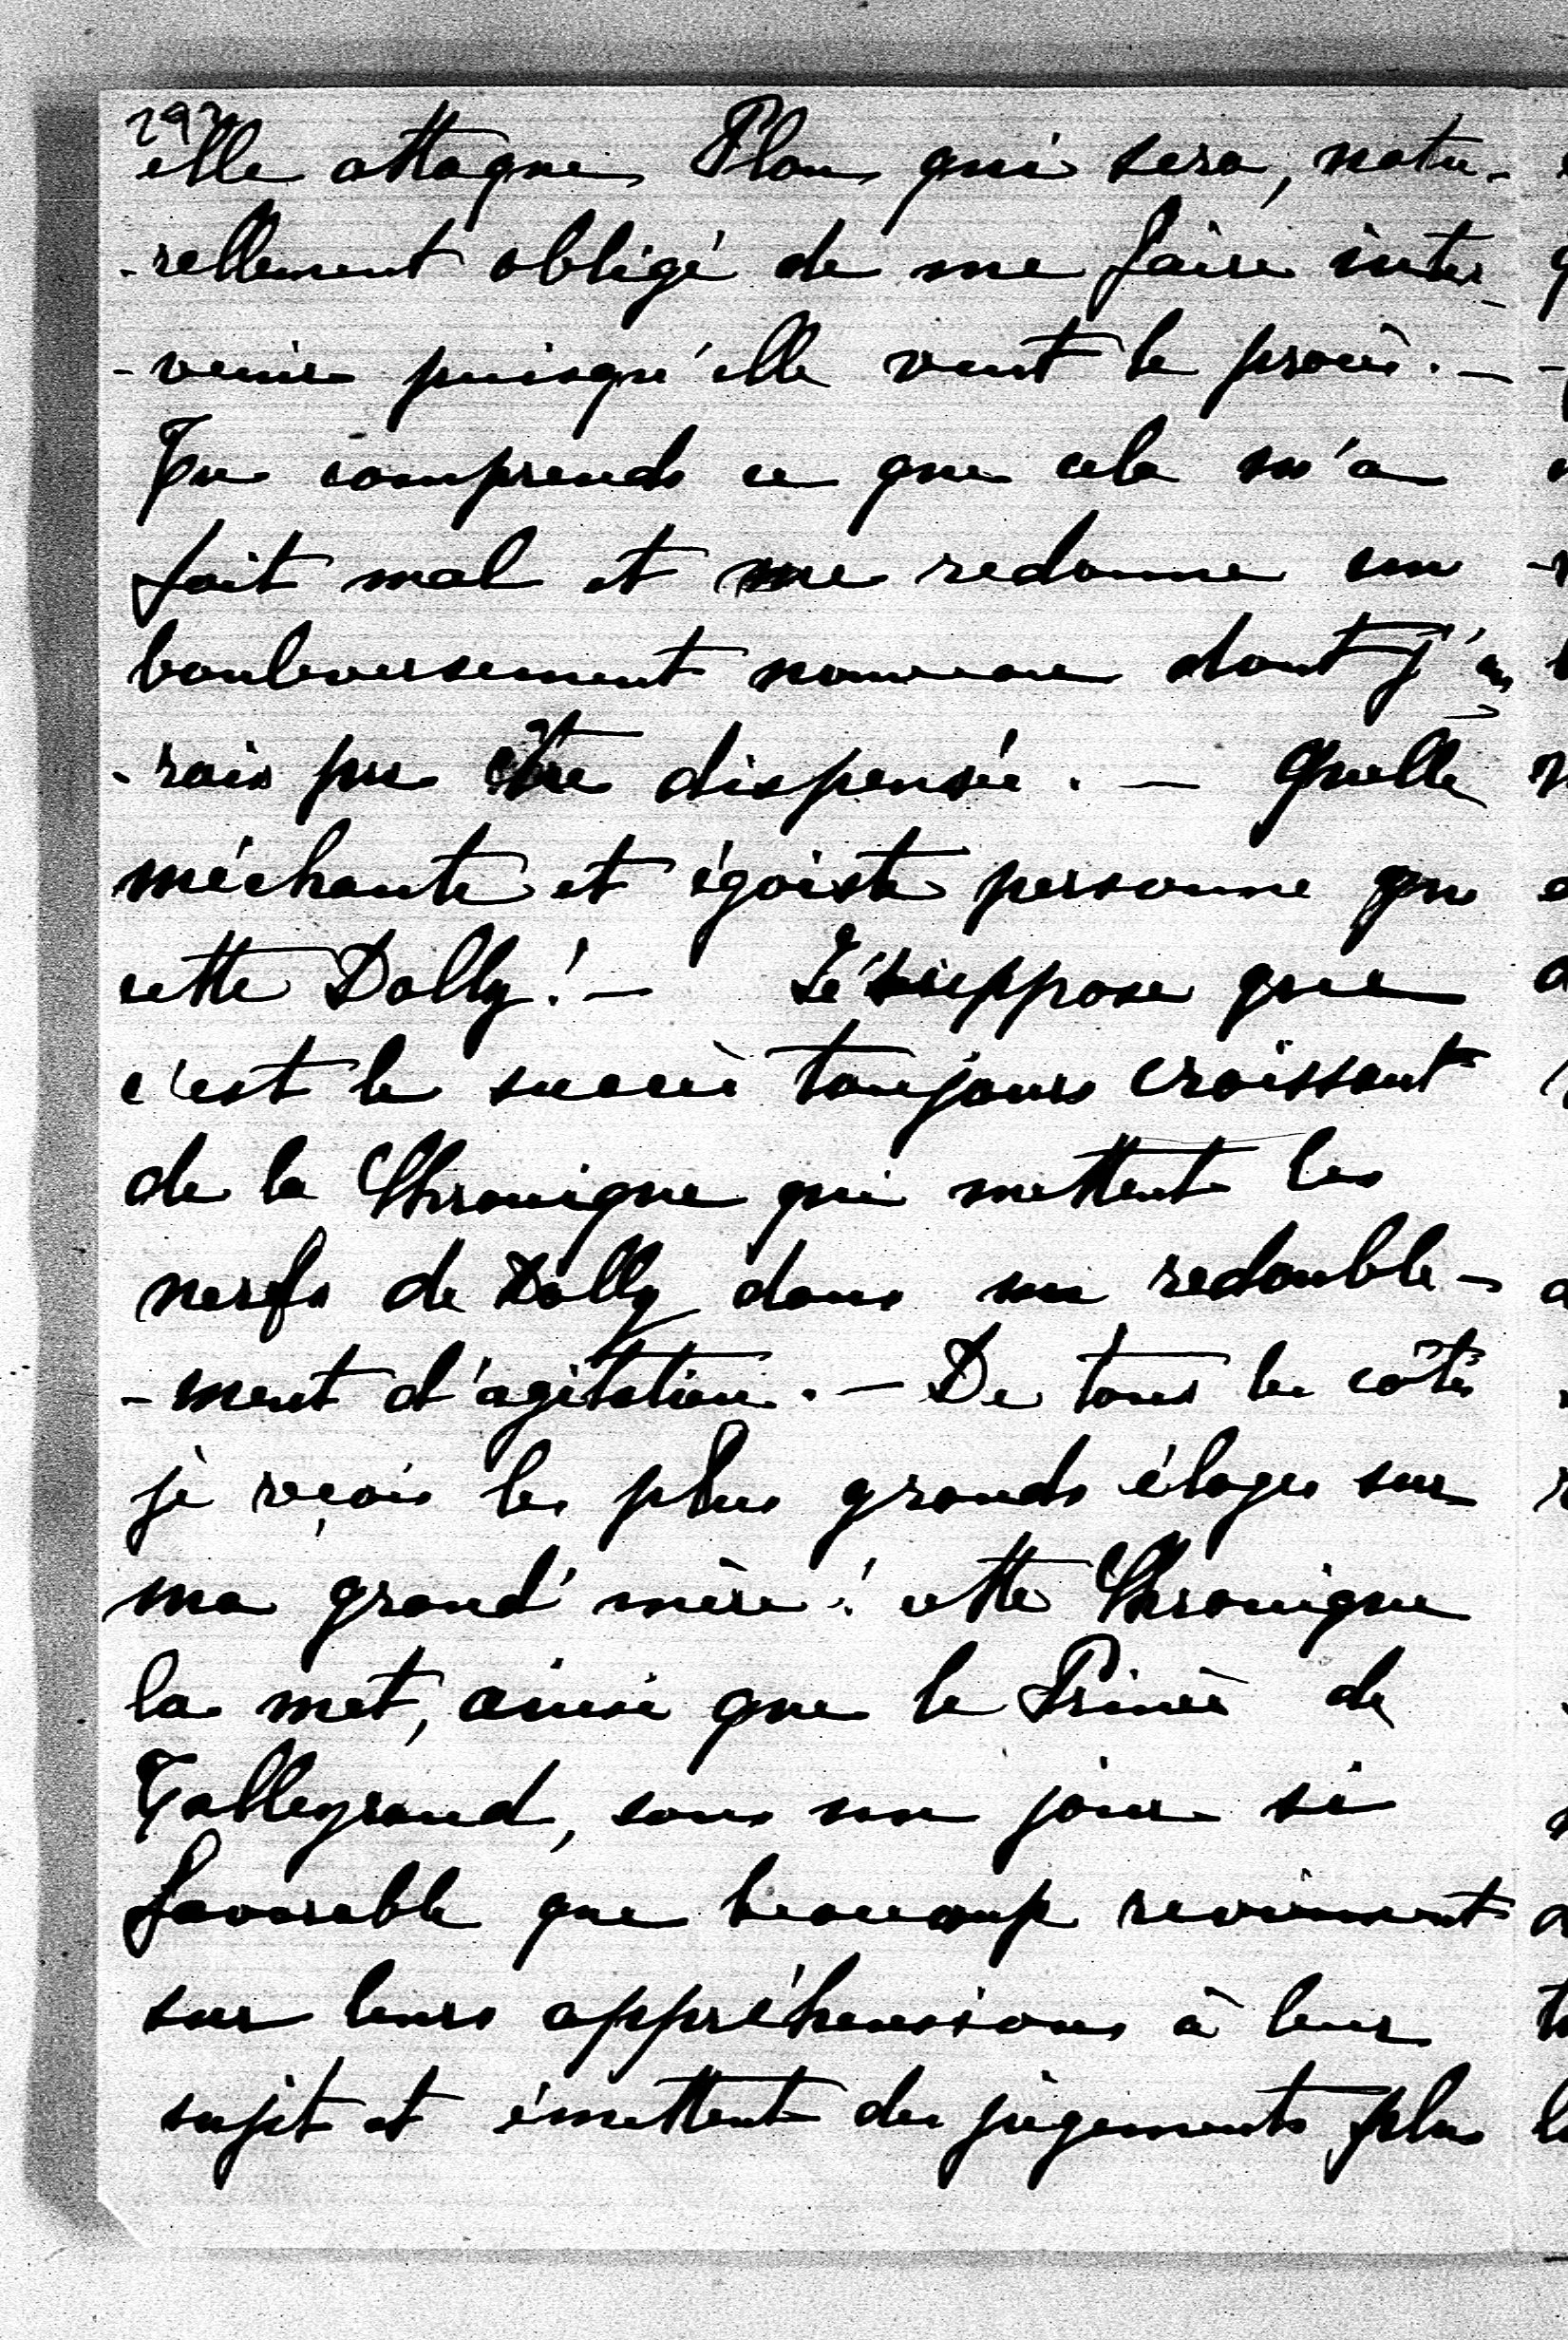 elle attaque Plon qui sera, natu-
-rellement obligé de me faire inter-
-venir puisqu'elle veut le procès. —
Tu comprends ce que cela m'a
fait mal et me redonne un
bouleversement nouveau dont j'au-
-rais pu être dispensée. — Quelle
méchante et égoïste personne que
cette Dolly! — Je suppose que
c'est le succès toujours croissant
de la Chronique qui mettent les
nerfs de Dolly dans un redouble-
-ment d'agitation. — De tous les côtés
je reçois les plus grands éloges sur
ma grand'mère! cette Chronique
la met, ainsi que le Prince de
Talleyrand, sous un jour si
favorable que beaucoup reviennent
sur leurs appréhensions à leur
sujet et émettent des jugements plus